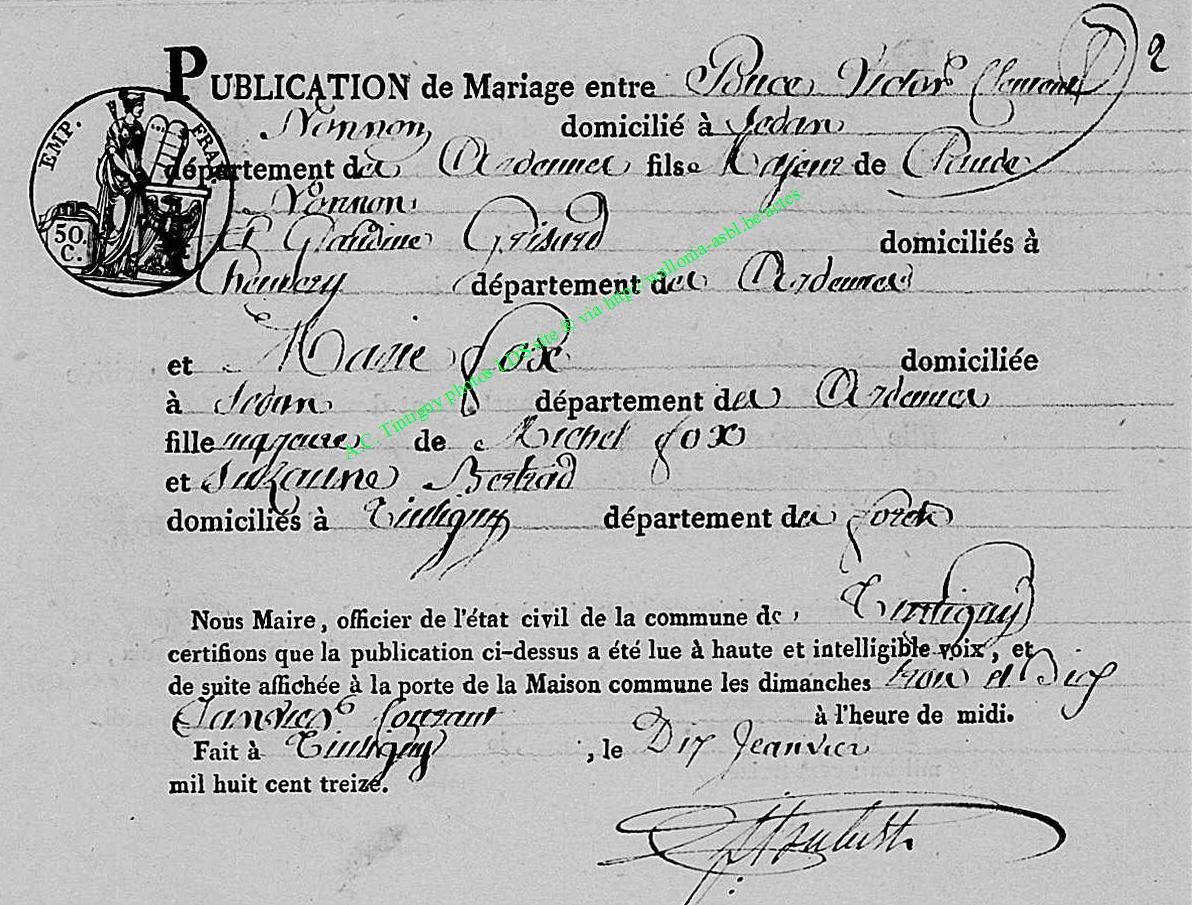 2
PUBLICATION de Mariage entre Puce Victor Clement
Nonnon domicilié à Sedan
département des Ardennes fils Majeur de Claude
Nonnon
Et Glaudine Grisard domiciliés à
Chemery département des Ardennes
et Marie fox domiciliée
à Sedan département des Ardennes
fille majeure de Michel fox
et Suzanne Bertrad
domiciliés à Tintigny département des forets
Nous Maire, officier de l'état civil de la commune de Tintigny
certifions que la publication ci-dessus a été lue à haute et intelligible voix, et
de suite affichée à la porte de la Maison commune les dimanches trois et Dix
Janvier Courant à l'heure de midi.
Fait à Tintigny, le Dix Jeanvier
mil huit cent treize.
EMP. FRAN.
50.
C.
A.C. Tintigny photos LDS-site & via http://walloma-asbl.be-actes